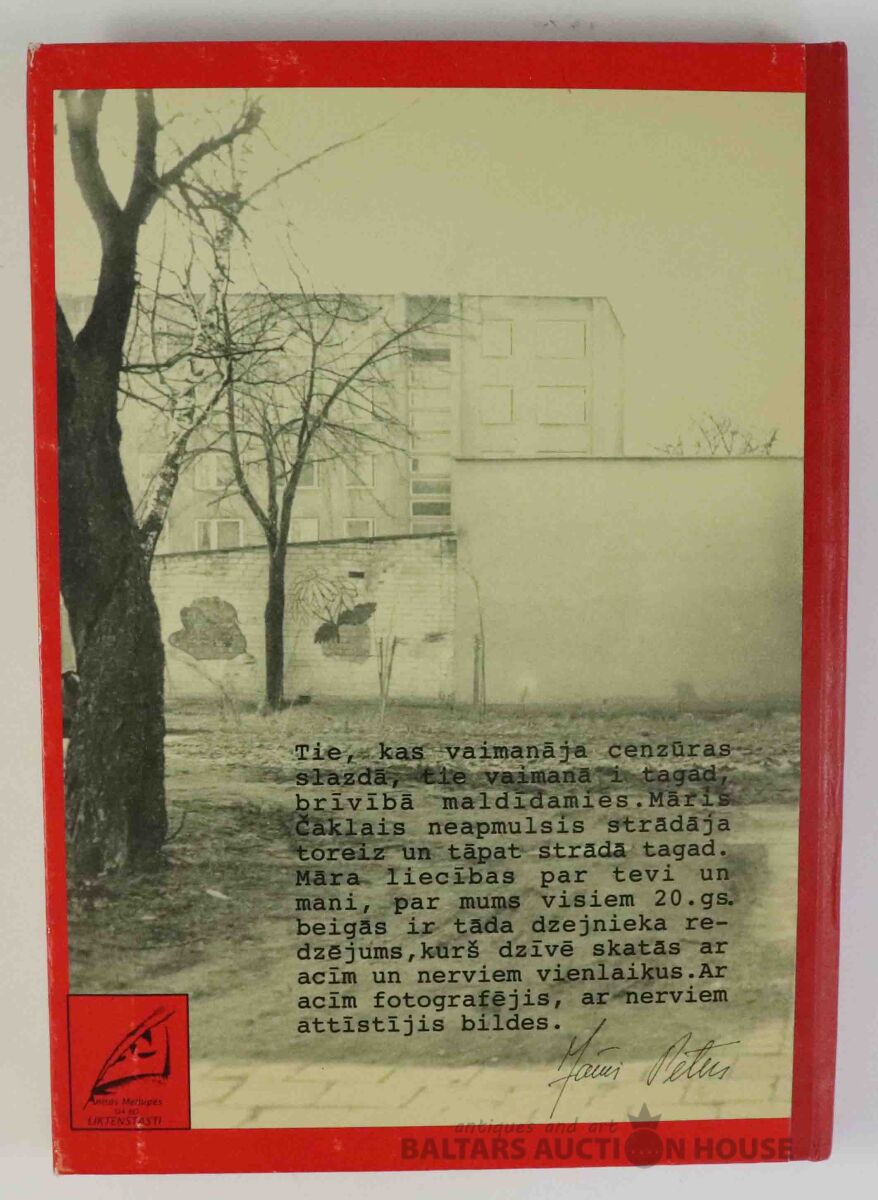 Tie, kas vaimanāja cenzūras
slazdā, tie vaimanā i tagad,
brīvībā maldīdamies.Māris
Čaklais neapmulsis strādāja
toreiz un tāpat strādā tagad.
Māra liecības par tevi un
mani, par mums visiem 20.gs.
beigās ir tāda dzejnieka re-
dzējums,kurš dzīvē skatās ar
acīm un nerviem vienlaikus.Ar
acīm fotografējis, ar nerviem
attīstījis bildes.
Jānis Peters
Anitas Mellupes
LIKTEŅSTĀSTI
antiques and art
BALTARS AUCTION HOUSE